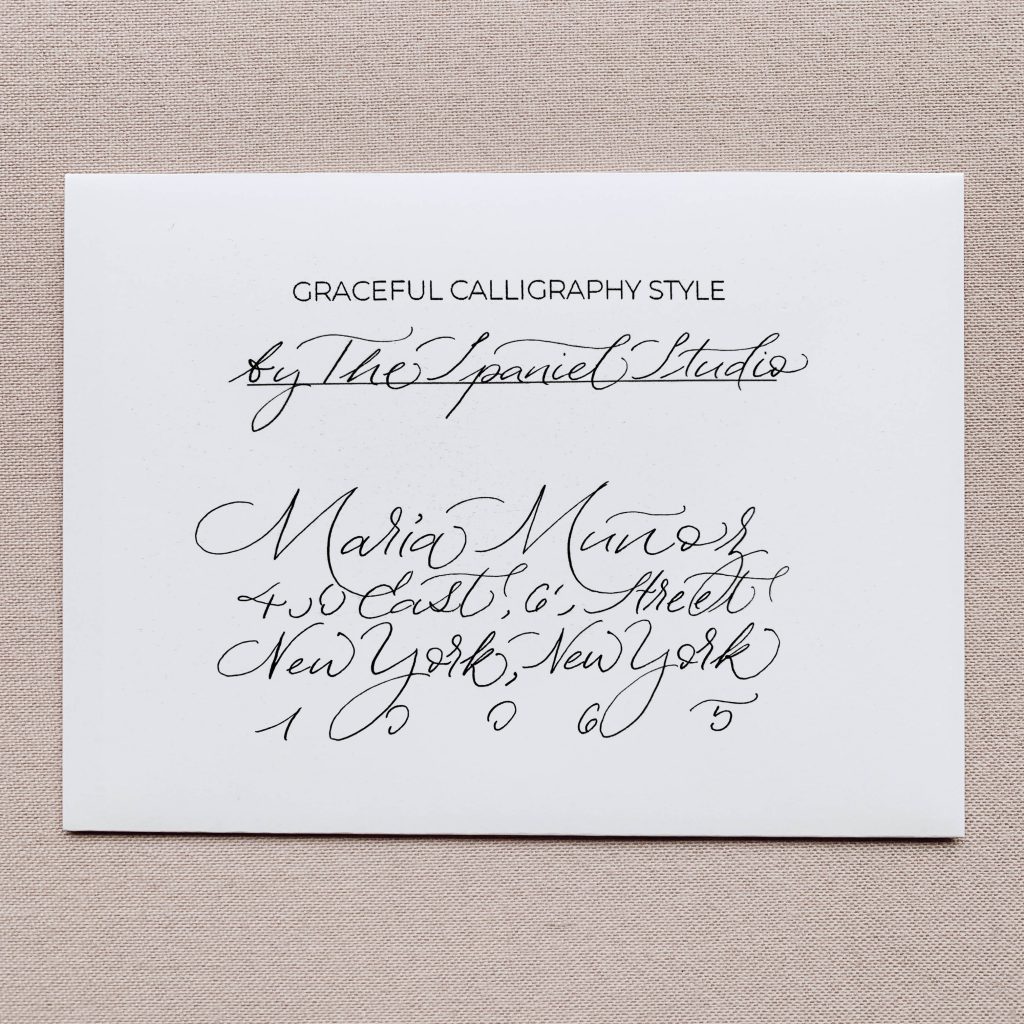 GRACEFUL CALLIGRAPHY STYLE
by The Spaniel Studio
Maria Muñoz
400 East, 6, Street
New York, New York
1 0 0 6 5